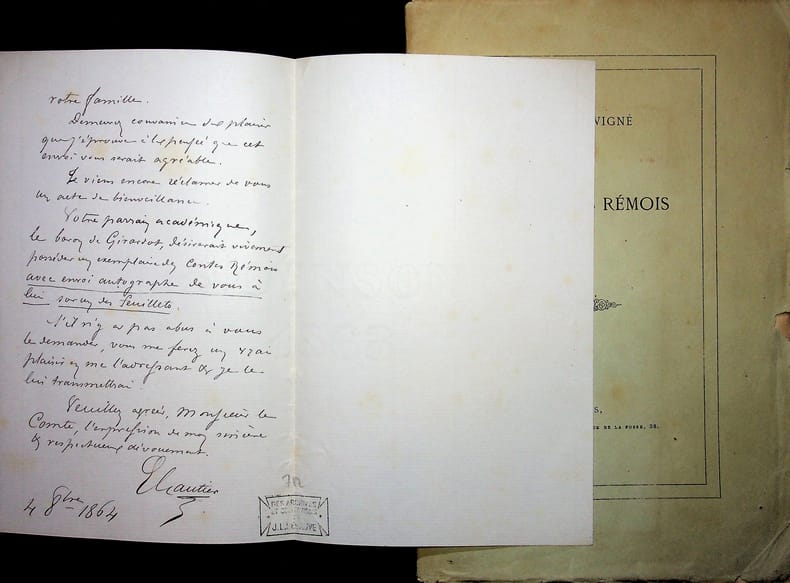 votre famille.
Demeurez convaincu du plaisir
que j'éprouve à la pensée que cet
envoi vous serait agréable.
Je viens encore réclamer de vous
un acte de bienveillance.
Votre parrain académique,
le baron de Girardot, désirerait vivement
posséder un exemplaire des Contes Rémois
avec envoi autographe de vous à
lui sur un des feuillets.
S'il n'y a pas abus à vous
le demander, vous me ferez un vrai
plaisir en me l'adressant & je le
lui transmettrai
Veuillez agréer, Monsieur le
Comte, l'expression de mon sincère
& respectueux dévouement.
EGautier
4 8bre 1864
DES ARCHIVES
ET COLLECTIONS
J.L. DEBAUVE
VIGNÉ
RÉMOIS
S,
DE LA FOSSE, 28.